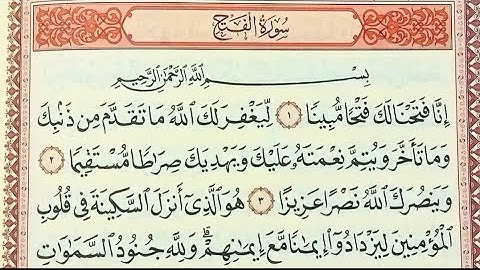 سُورَةُ الفَتْحِ
بِسْمِ ٱللَّهِ ٱلرَّحْمَٰنِ ٱلرَّحِيمِ
إِنَّا فَتَحْنَا لَكَ فَتْحًا مُّبِينًا ١ لِّيَغْفِرَ لَكَ ٱللَّهُ مَا تَقَدَّمَ مِن ذَنۢبِكَ
وَمَا تَأَخَّرَ وَيُتِمَّ نِعْمَتَهُۥ عَلَيْكَ وَيَهْدِيَكَ صِرَٰطًا مُّسْتَقِيمًا ٢
وَيَنصُرَكَ ٱللَّهُ نَصْرًا عَزِيزًا ٣ هُوَ ٱلَّذِىٓ أَنزَلَ ٱلسَّكِينَةَ فِى قُلُوبِ
ٱلْمُؤْمِنِينَ لِيَزْدَادُوٓا۟ إِيمَٰنًا مَّعَ إِيمَٰنِهِمْ ۗ وَلِلَّهِ جُنُودُ ٱلسَّمَٰوَٰتِ